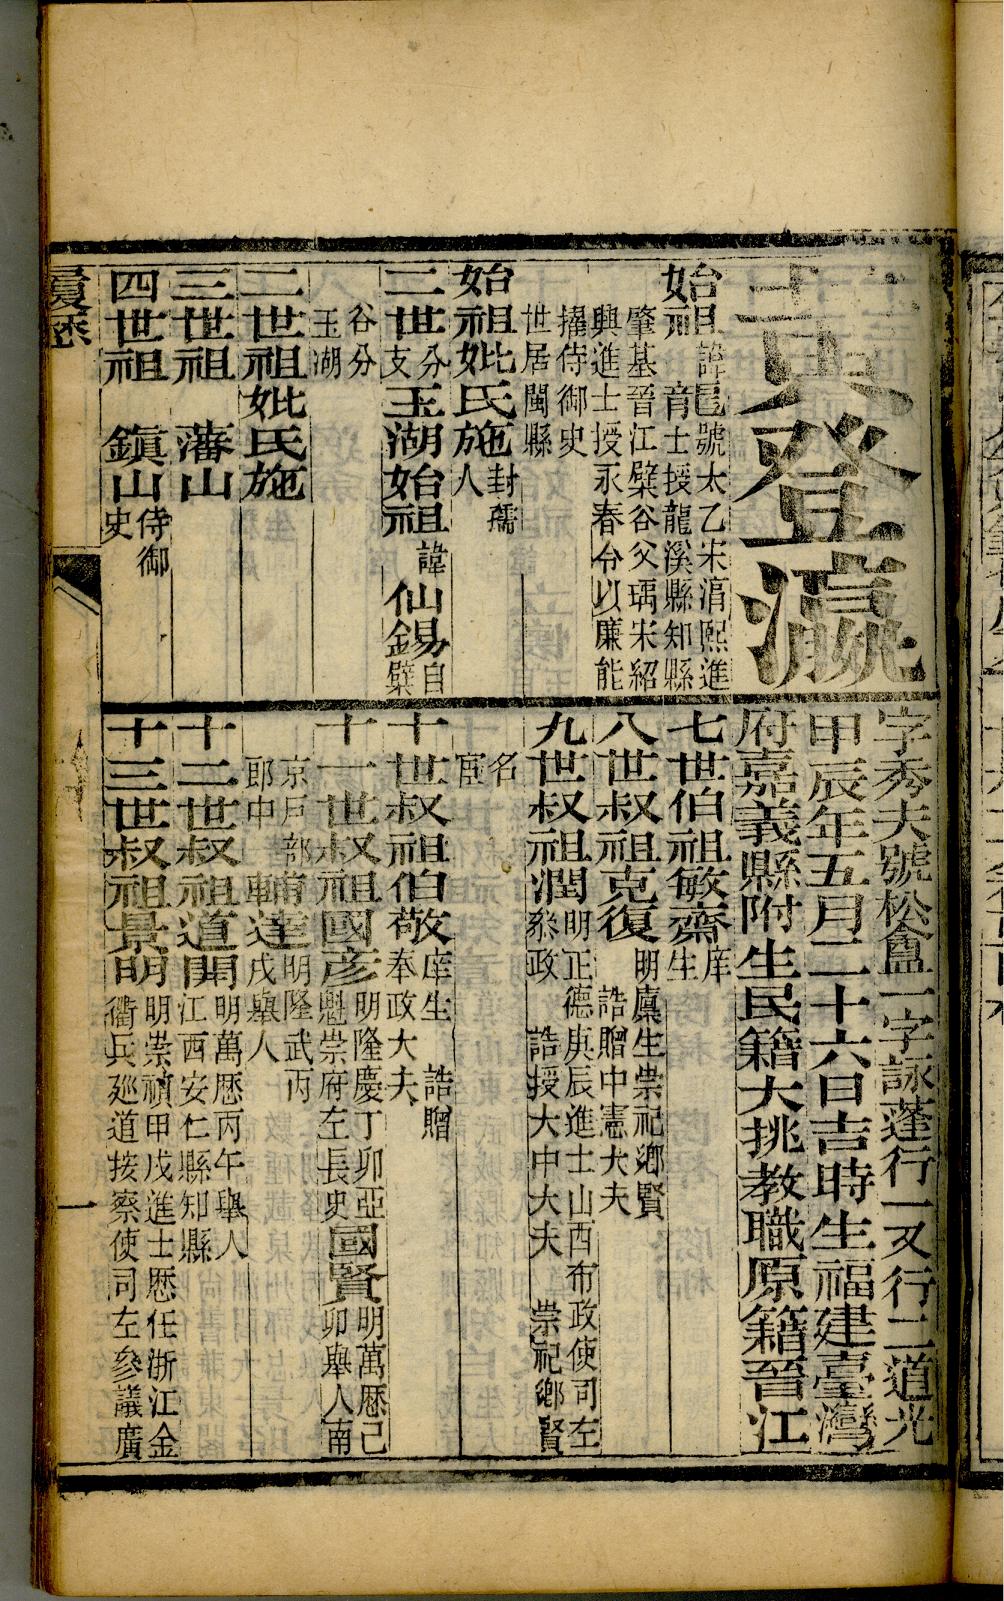 黃登瀛
字秀夫號松盦一字詠蓬行一又行二道光
甲辰年五月二十六日吉時生福建臺灣
府嘉義縣附生民籍大挑教職原籍晉江
始祖諱邕號太乙宋淯熙進
士授龍溪縣知縣
肇基晉江檗谷父瑀宋紹
興進士授永春令以廉能
擢侍御史
世居閩縣
始祖妣氏施封孺
人
二世分
支玉湖始祖諱仙錫自
檗
谷分
玉湖
二世祖妣氏施
三世祖 藩山
四世祖 鎮山侍御
史
七世伯祖敏齋庠
生
八世叔祖克復明廩生崇祀鄉賢
誥贈中憲大夫
九世叔祖潤明正德庚辰進士山西布政使司左
叅政 誥授大中大夫 崇祀鄉賢
名
宦
十世叔祖伯敬庠生 誥贈
奉政大夫
十一世叔祖國彥明隆慶丁卯亞
魁崇府左長史國賢明萬歷己
卯舉人南
京戶部
郎中達明隆武丙
戌舉人
十二世叔祖道開明萬歷丙午舉人
江西安仁縣知縣
十三世叔祖景明明崇禎甲戌進士歷任浙江金
衢兵廵道按察使司左參議廣
履歷
一